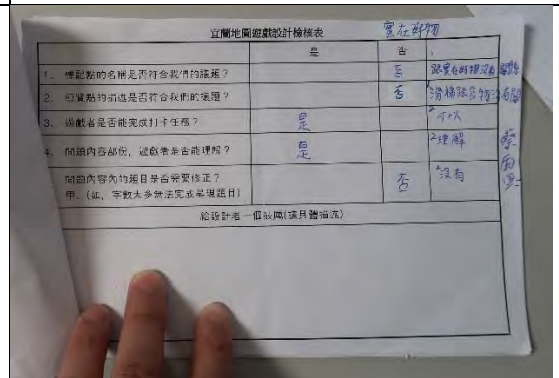 宜蘭地圖遊戲設計檢核表 實在好物
是 否
1. 標記點的名稱是否符合我們的議題? 否 跟實在好物沒有關點
2. 標點的描述是否符合我們的議題? 否 滑梯跟好物沒有關
3. 遊戲者是否能完成打卡任務? 是 可以
4. 問題內容部份,遊戲者是否能理解? 是 理解
問題內容內的題目是否需要修正? 否 沒有
甲、(如,字數太多無法完成呈現題目)
給設計者一個鼓勵(請具體描述)